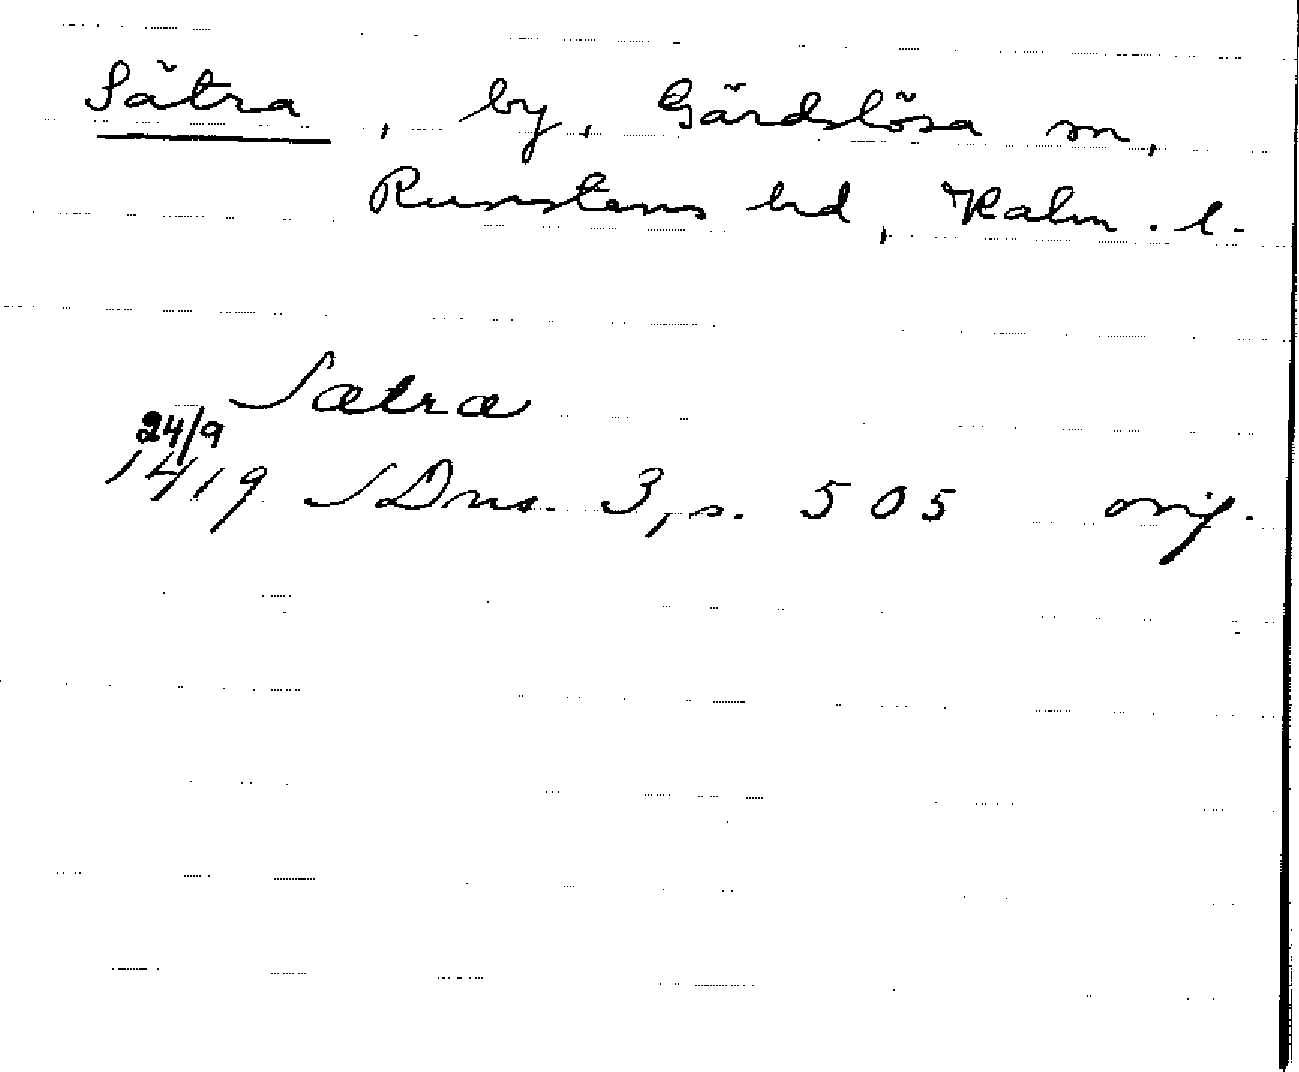 Sätra, by, Gärdslösa sn,
Runstens hd, Kalm. l.
Sætræ
24/9
1419 SDns. 3, s. 505 orig.